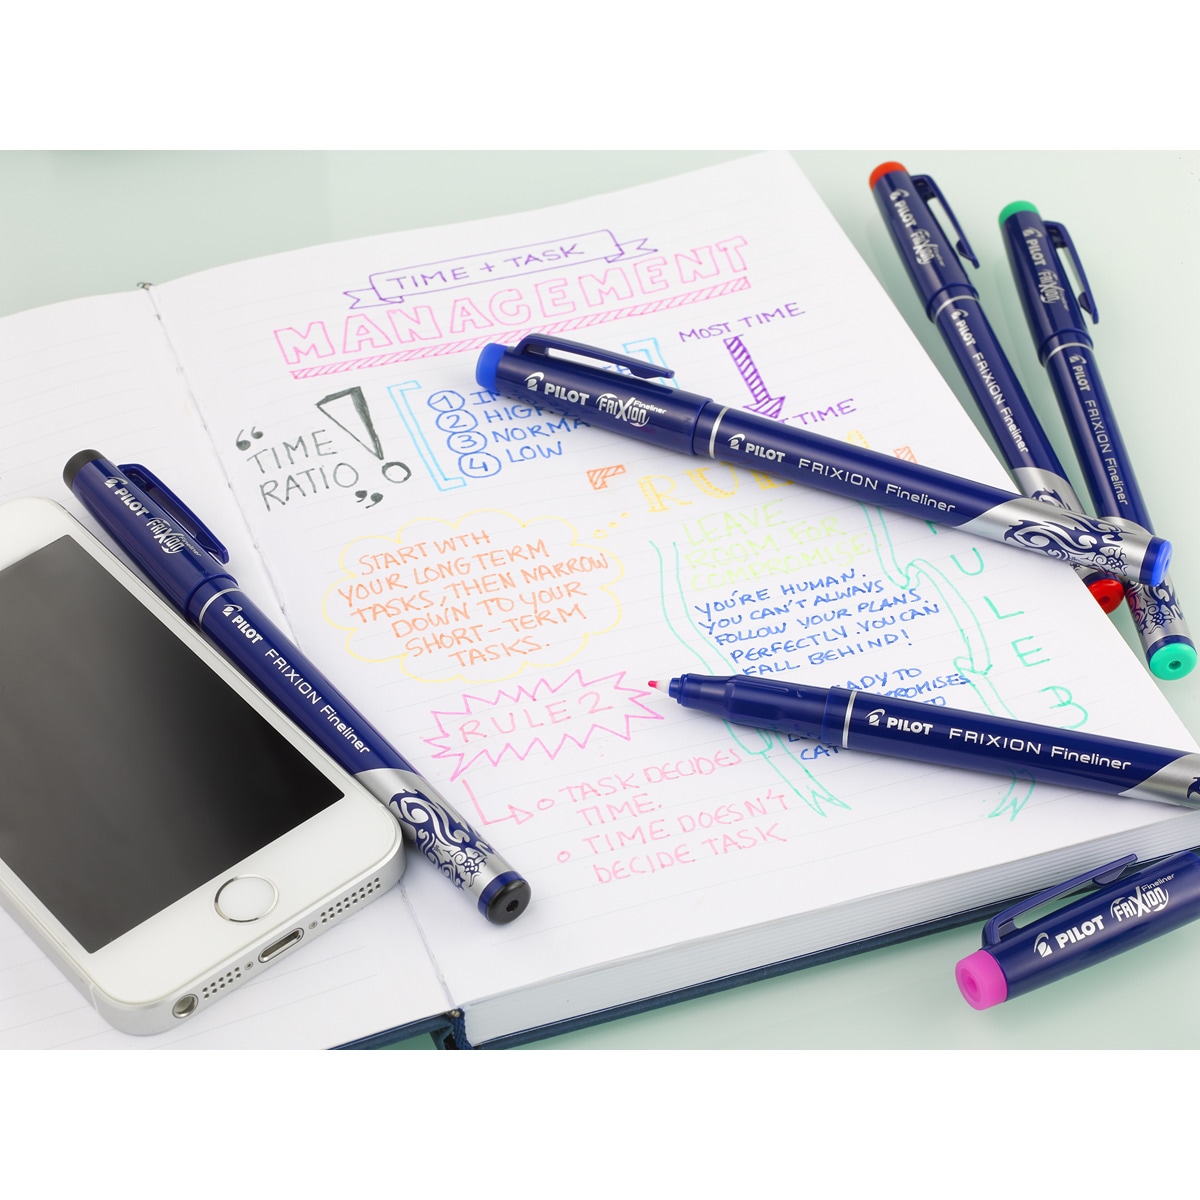 TIME + TASK
MANAGEMENT
MOST TIME
TIME
"TIME
RATIO"
!
1
2 HIGH
3 NORMA
4 LOW
START WTH
YOUR LONGTERM
TASKS, THEN NARROW
DOWN TO YOUR
SHORT-TERM
TASKS.
LEAVE
ROOM FOR
COMPROMISE
YOU'RE HUMAN.
YOU CAN'T ALWAYS
FOLLOW YOUR PLANS
PERFECTLY. YOU CAN
FALL BEHIND!
ADY TO
PROMISES
RULE 2
TASK DECIDES
TIME.
TIME DOESN'T
DECIDE TASK
U
L
E
3
PILOT FRIXION Fineliner
PILOT FRIXION Fineliner
PILOT FRIXION Fineliner
PILOT FRIXION Fineliner
PILOT FRIXION Fineliner
PILOT FRIXION Fineliner
PILOT FRIXION Fineliner
PILOT FRIXION Fineliner
PILOT FRIXION Fineliner
PILOT FRIXION Fineliner